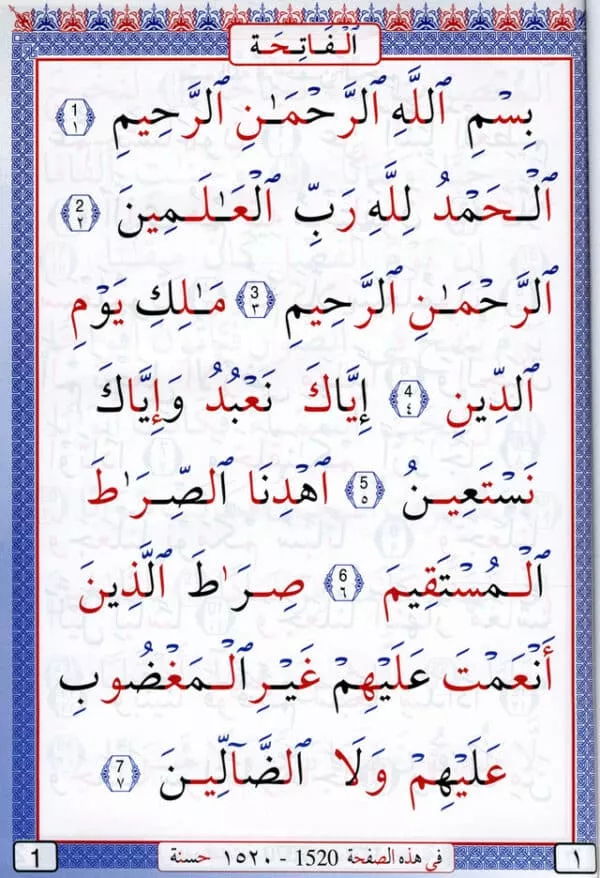 ٱلْفَاتِحَة
بِسْمِ ٱللَّهِ ٱلرَّحْمَٰنِ ٱلرَّحِيمِ 1 ١
ٱلْحَمْدُ لِلَّهِ رَبِّ ٱلْعَٰلَمِينَ 2 ٢
ٱلرَّحْمَٰنِ ٱلرَّحِيمِ 3 ٣ مَٰلِكِ يَوْمِ
ٱلدِّينِ 4 ٤ إِيَّاكَ نَعْبُدُ وَإِيَّاكَ
نَسْتَعِينُ 5 ٥ ٱهْدِنَا ٱلصِّرَٰطَ
ٱلْمُسْتَقِيمَ 6 ٦ صِرَٰطَ ٱلَّذِينَ
أَنْعَمْتَ عَلَيْهِمْ غَيْرِ ٱلْمَغْضُوبِ
عَلَيْهِمْ وَلَا ٱلضَّآلِّينَ 7 ٧
١ في هذه الصفحة 1520 - ١٥٢٠ حسنة 1